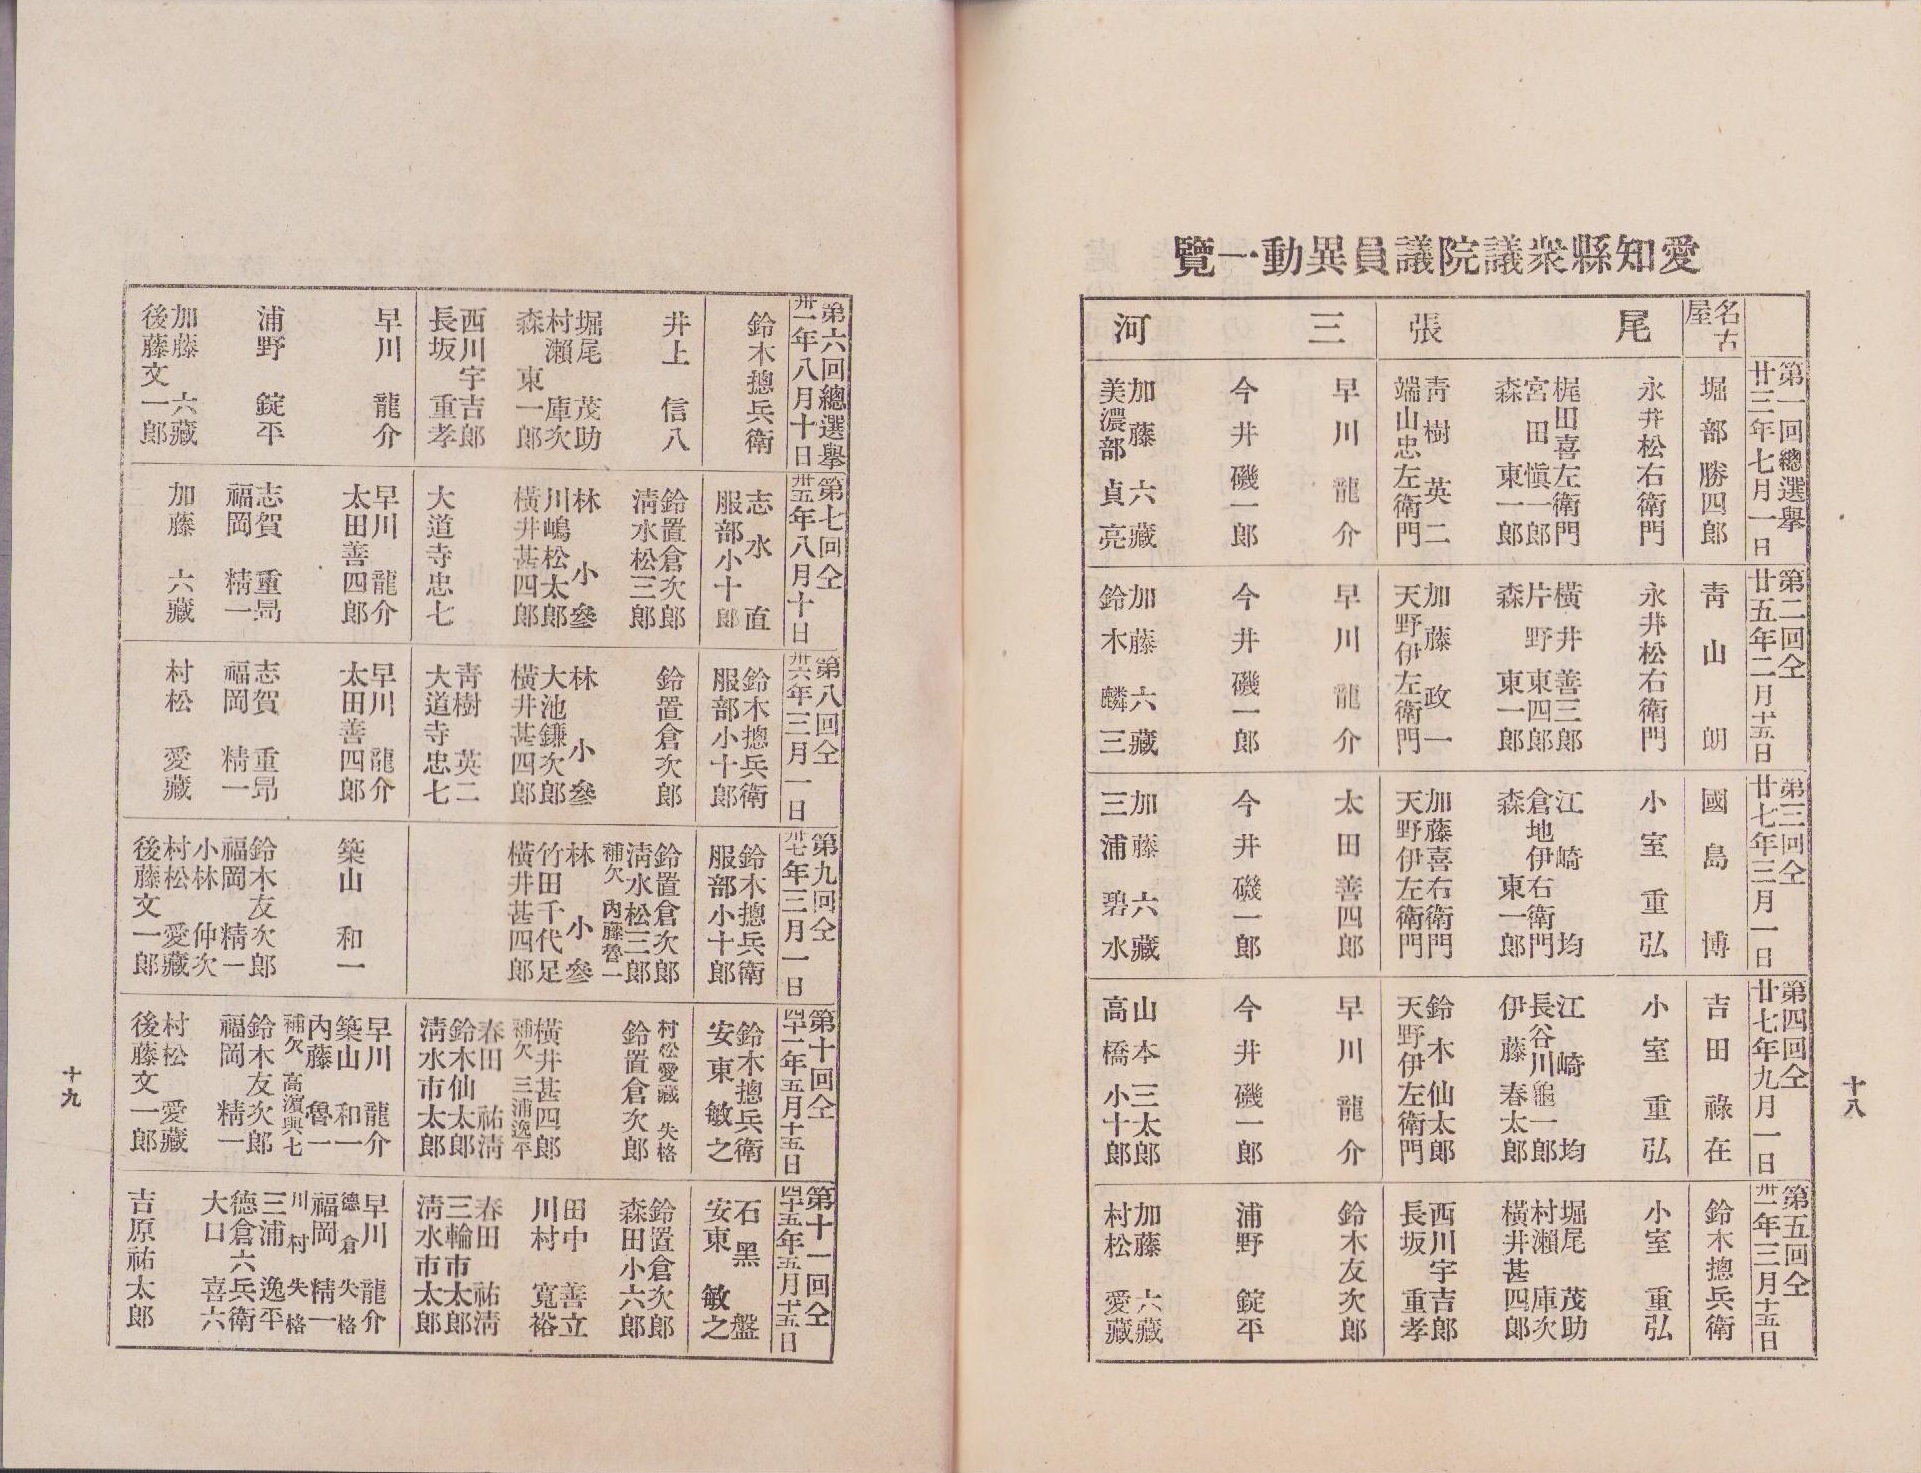 愛知縣衆議院議員異動一覽
名古屋
尾張
三河
第一回總選擧
廿三年七月一日
堀部勝四郎
永井松右衛門
梶田喜左衛門
宮田愼一郎
森東一郎
靑樹英二
端山忠左衛門
早川龍介
今井磯一郎
加藤六藏
美濃部貞亮
第二回仝
廿五年二月十五日
靑山朗
永井松右衛門
橫井善三郎
片野東四郎
森東一郎
加藤政一
天野伊左衛門
早川龍介
今井磯一郎
加藤六藏
鈴木麟三
第三回仝
廿七年三月一日
國島博
小室重弘
江崎均
倉地伊右衛門
森東一郎
加藤喜右衛門
天野伊左衛門
太田善四郎
今井磯一郎
加藤六藏
三浦碧水
第四回仝
廿七年九月一日
吉田祿在
小室重弘
江崎均
長谷川龜一郎
伊藤春太郎
鈴木仙太郎
天野伊左衛門
早川龍介
今井磯一郎
山本三太郎
高橋小十郎
第五回仝
卅一年三月十五日
鈴木摠兵衛
小室重弘
堀尾茂助
村瀨庫次
橫井甚四郎
西川宇吉郎
長坂重孝
鈴木友次郎
浦野錠平
加藤六藏
村松愛藏
十八
第六回總選擧
卅一年八月十日
鈴木摠兵衛
井上信八
堀尾茂助
村瀨庫次
森東一郎
西川宇吉郎
長坂重孝
早川龍介
浦野錠平
加藤六藏
後藤文一郎
第七回仝
卅五年八月十日
志水直
服部小十郎
鈴置倉次郎
淸水松三郎
林小參
川嶋松太郎
橫井甚四郎
大道寺忠七
早川龍介
太田善四郎
志賀重昂
福岡精一
加藤六藏
第八回仝
卅六年三月一日
鈴木摠兵衛
服部小十郎
鈴置倉次郎
林小參
大池鎌次郎
橫井甚四郎
靑樹英二
大道寺忠七
早川龍介
太田善四郎
志賀重昂
福岡精一
村松愛藏
第九回仝
卅七年三月一日
鈴木摠兵衛
服部小十郎
鈴置倉次郎
淸水松三郎
補欠 內藤魯一
林小參
竹田千代足
橫井甚四郎
築山和一
鈴木友次郎
福岡精一
小林仲次
村松愛藏
後藤文一郎
第十回仝
四十一年五月十五日
鈴木摠兵衛
安東敏之
村松愛藏 失格
鈴置倉次郎
橫井甚四郎
補欠 三浦逸平
春田祐淸
鈴木仙太郎
淸水市太郎
早川龍介
築山和一
內藤魯一
補欠 高濱與七
鈴木友次郎
福岡精一
村松愛藏
後藤文一郎
第十一回仝
四十五年五月十五日
石黑盤
安東敏之
鈴置倉次郎
森田小六郎
田中善立
川村寬裕
春田祐淸
三輪市太郎
淸水市太郎
早川龍介
德倉失格
福岡精一
川村失格
三浦逸平
德倉六兵衛
大口喜六
吉原祐太郎
十九